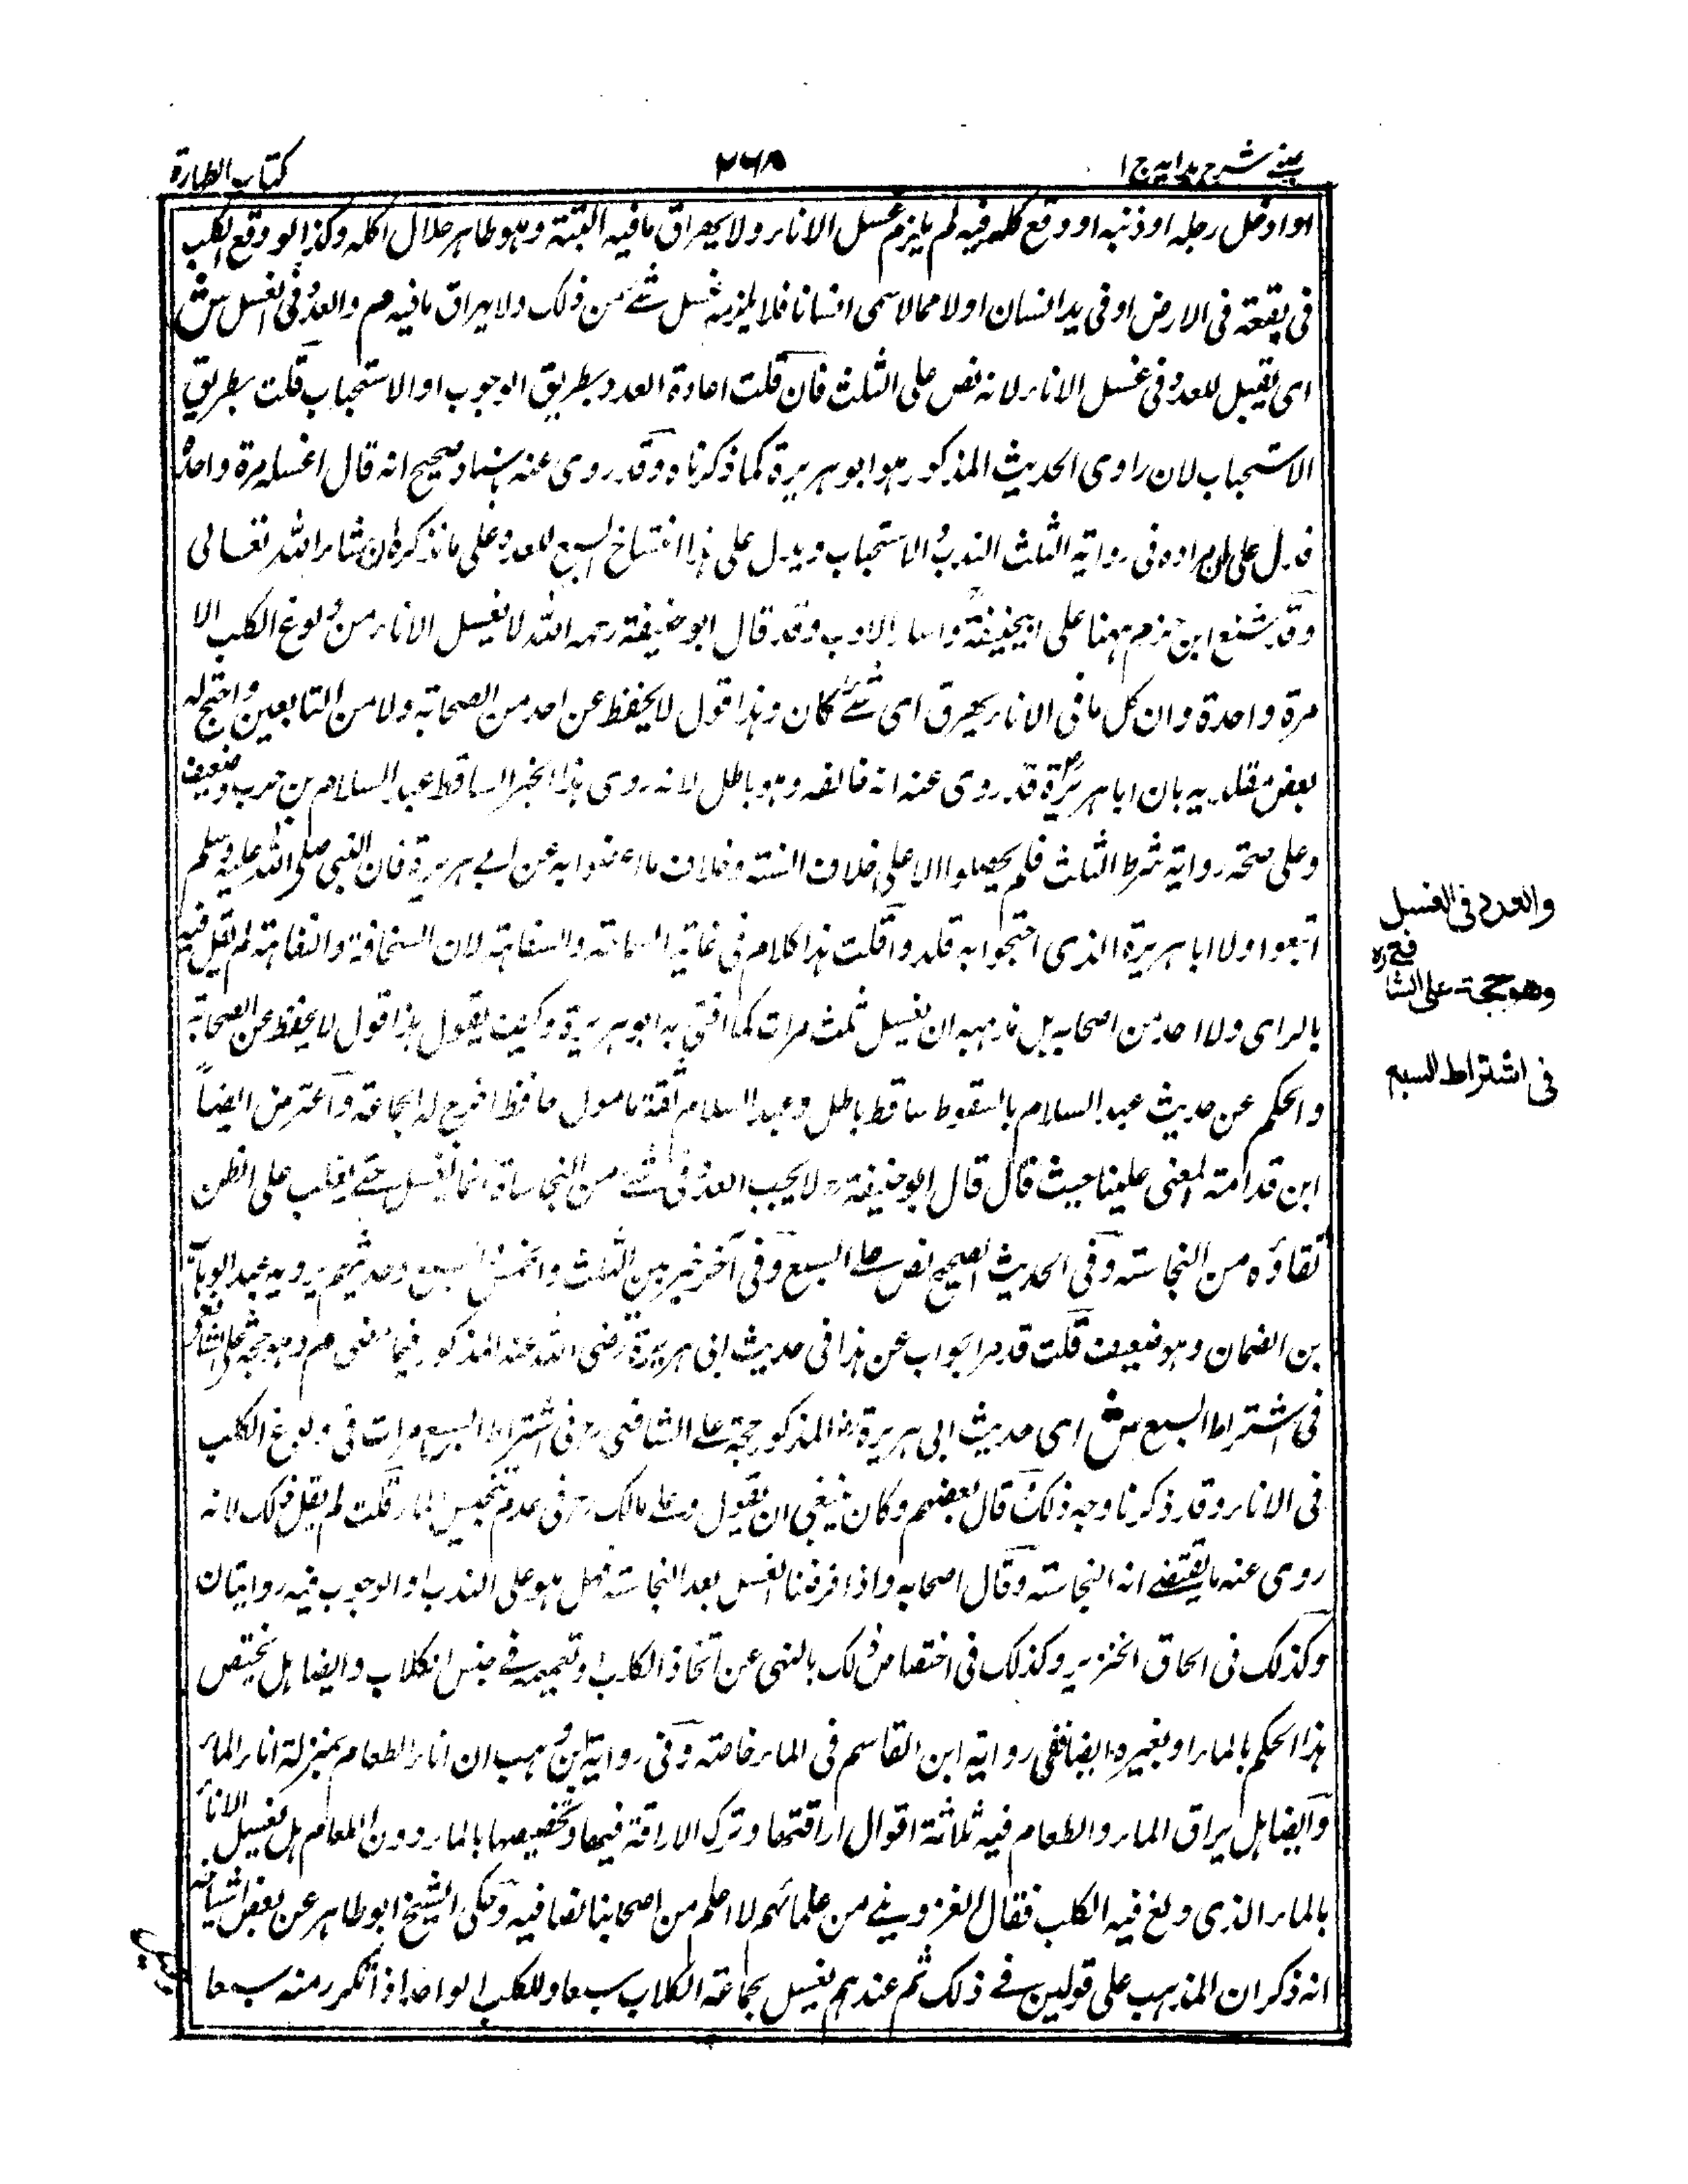 عينى شرح هدايه ج ١
٢٦٨
كتاب الطهارة
او ادخل رجله او ذنبه او وقع كله فيه لم يلزم غسل الاناء ولا يهراق ما فيه البتة وهو طاهر حلال اكله وكذا لو وقع الكلب
فى بقعة فى الارض او فى يد انسان او لا مما لا يسمى اناء فلا يلزمه غسل شئ من ذلك ولا يهراق ما فيه م والعدد فى الغسل ش
اى يقبل العدد فى غسل الاناء لانه نص على الثلث فان قلت اعادة العدد بطريق الوجوب او الاستحباب قلت بطريق
الاستحباب لان راوى الحديث المذكور هو ابو هريرة كما ذكرناه وقد روى عنه باسناد صحيح انه قال اغسله مرة واحدة
فدل على ان مراده فى رواية الثلث الندب والاستحباب ويدل على هذا انتساخ السبع للعدد على ما نذكره ان شاء الله تعالى
وقد شنع ابن حزم ههنا على ابيحنيفة واساء الادب وقد قال ابو حنيفة رحمه الله لا يغسل الاناء من ولوغ الكلب الا
مرة واحدة وان كل ما فى الاناء يهرق اى شئ كان وهذا قول لا يحفظ عن احد من الصحابة ولا من التابعين واحتج له
بعض مقلديه بان ابا هريرة قد روى عنه انه خالفه وهو باطل لانه روى هذا الخبر الساقط عبد السلام بن حرب وضعيف
وعلى صحة رواية شرط الثلث فلم يحصلوا الا على خلاف السنة وخلاف ما اعتضدوا به عن ابى هريرة فان النبى صلى الله عليه وسلم
اتبعوا ولا ابا هريرة الذى احتجوا به قلدوا قلت هذا كلام فى غاية السماجة والسفاهة لان السخافة والتفاهة لم يقل فيه
بالراى ولا احد من اصحابه بل مذهبه ان يغسل ثلث مرات كما افتى به ابو هريرة وكيف يقول هذا قول لا يحفظ عن الصحابة
والحكم عن حديث عبد السلام بالسقوط ساقط باطل وعبد السلام ثقة مامول حافظ اخرج له الجماعة واعترض ايضا
ابن قدامة المغنى علينا حيث قال قال ابو حنيفة رح لا يجب العدد فى شئ من النجاسات انما يغسل حتى يغلب على الظن
نقاؤه من النجاسة وفى الحديث الصحيح نص على السبع وفى آخر خير بين الثلث والخمس والسبع وحديثهم يرويه عبد الوهاب
بن الضحاك وهو ضعيف قلت قد مر الجواب عن هذا فى حديث ابى هريرة رضى الله عنه المذكور فيما مضى م وهو حجة على الشافعى
فى اشتراط السبع ش اى حديث ابى هريرة رض المذكور حجة على الشافعى رح فى اشتراط السبع مرات فى ولوغ الكلب
فى الاناء وقد ذكرنا وجه ذلك قال بعضهم وكان ينبغى ان يقول وعلى مالك رح فى عدم تنجيس الماء قلت لم يقل ذلك لانه
روى عنه ما يقتضى انه النجاسة وقال اصحابه واذا فرضنا الغسل بعد النجاسة فهل هو على الندب او الوجوب فيه روايتان
وكذلك فى الحاق الخنزير وكذلك فى اختصاص ذلك بالنهى عن اتخاذ الكلاب او تعميمه فى جنس الكلاب وايضا هل يختص
هذا الحكم بالماء او بغيره ايضا ففى رواية ابن القاسم فى الماء خاصة وفى رواية ابن وهب ان اناء الطعام بمنزلة اناء الماء
وايضا هل يراق الماء والطعام فيه ثلاثة اقوال اراقتها وترك الاراقة فيها وتخصيصها بالماء دون الطعام هل يغسل الاناء
بالماء الذى ولغ فيه الكلب فقال القزوينى من علمائهم لا اعلم من اصحابنا نصا فيه وحكى الشيخ ابو طاهر عن بعض اشياخه
انه ذكر ان المذهب على قولين فى ذلك ثم عندهم يغسل بجماعة الكلاب سبعا وللكلب الواحد اذا تكرر منه سبعا
والعدد فى الغسل
وهو حجة على الشافعى ره
فى اشتراط السبع